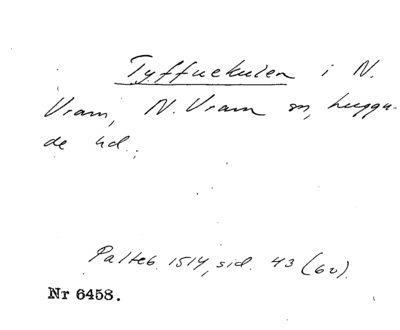 Tyffuekulen i N.
Vram, N. Vram sn, Luggu-
de hd.
Palteb. 1514, sid. 43 (60).
Nr 6458.